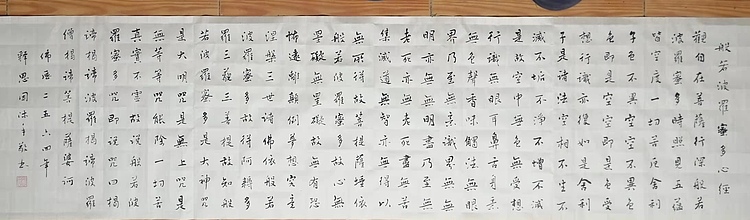 般若波羅蜜多心經
觀自在菩薩行深般若
波羅蜜多時照見五蘊
皆空度一切苦厄舍利
子色不異空空不異色
色即是空空即是色受
想行識亦復如是舍利
子是諸法空相不生不
滅不垢不淨不增不減
是故空中無色無受想
行識無眼耳鼻舌身意
無色聲香味觸法無眼
界乃至無意識界無無
明亦無無明盡乃至無
老死亦無老死盡無苦
集滅道無智亦無得以
無所得故菩提薩埵依
般若波羅蜜多故心無
罣礙無罣礙故無有恐
怖遠離顛倒夢想究竟
涅槃三世諸佛依般若
波羅蜜多故得阿耨多
羅三藐三菩提故知般
若波羅蜜多是大神咒
是大明咒是無上咒是
無等等咒能除一切苦
真實不虛故說般若波
羅蜜多咒即說咒曰揭
諦揭諦波羅揭諦波羅
僧揭諦菩提薩婆訶
佛曆二五六四年
釋思圓沐手敬書